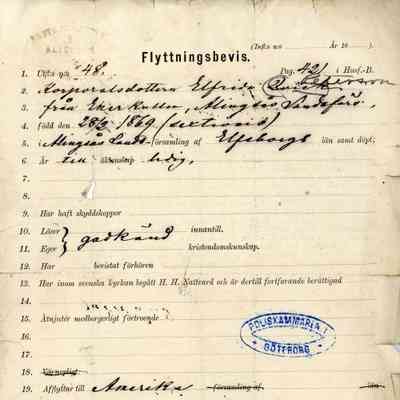 (Inflt. n:o År 10 .)
Flyttningsbevis.
1. Utfl:s n:o 48. Pag. 421 i Husf.-B.
2. Korporalsdottern Elfrida Qvick Peterson
3. från Ekerkullen, Alingsås Landsförs.,
4. född den 28/9 1869 (sextionio)
5. i Alingsås Lands-församling af Elfsborgs län samt döpt;
6. Är till äktenskap ledig,
7.
8.
9. Har haft skyddskoppor
10. Läser } godkänd innantill.
11. Eger kristendomskunskap.
12. Har bevistat förhören
13. Här inom svenska kyrkan begått H. H. Nattvard och är dertill fortfarande berättigad
14.
15. Åtnjuter medborgerligt förtroende
16.
17.
18. Vänneligt
19. Afflyttar till Amerika församling af län
POLISKAMMAREN I
GÖTEBORG